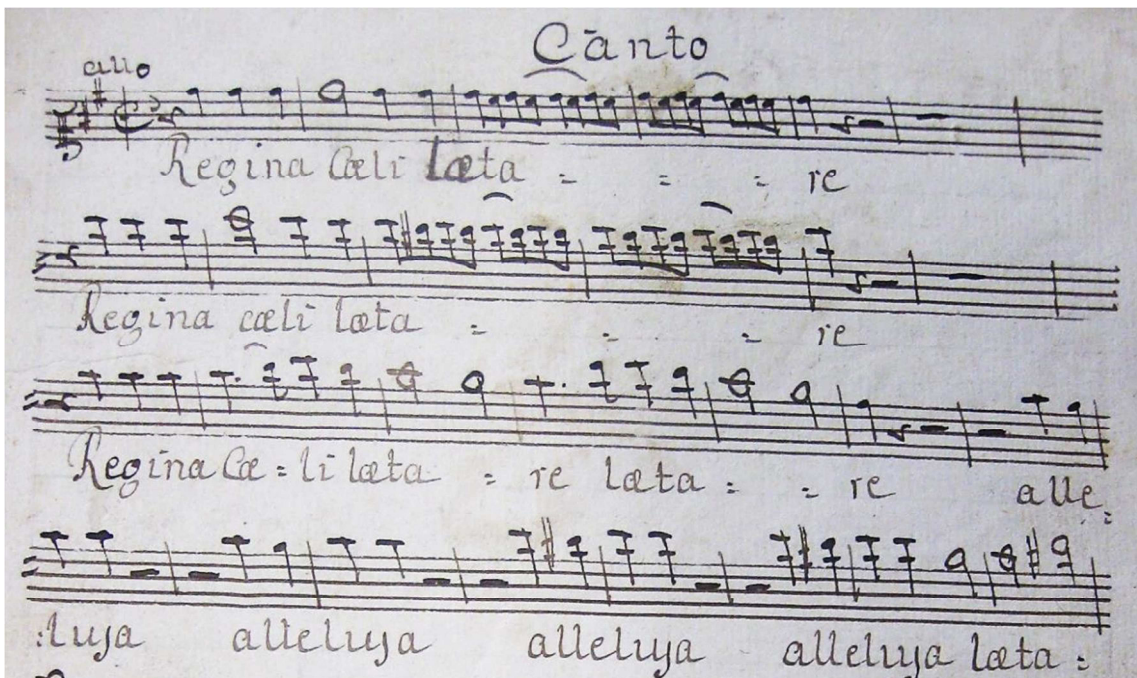 Canto
allo
Regina Cæli læta = = = re
Regina cæli læta = - = re
Regina Cæ = li læta = re læta = = re alle =
= luja alleluja alleluja alleluja læta =